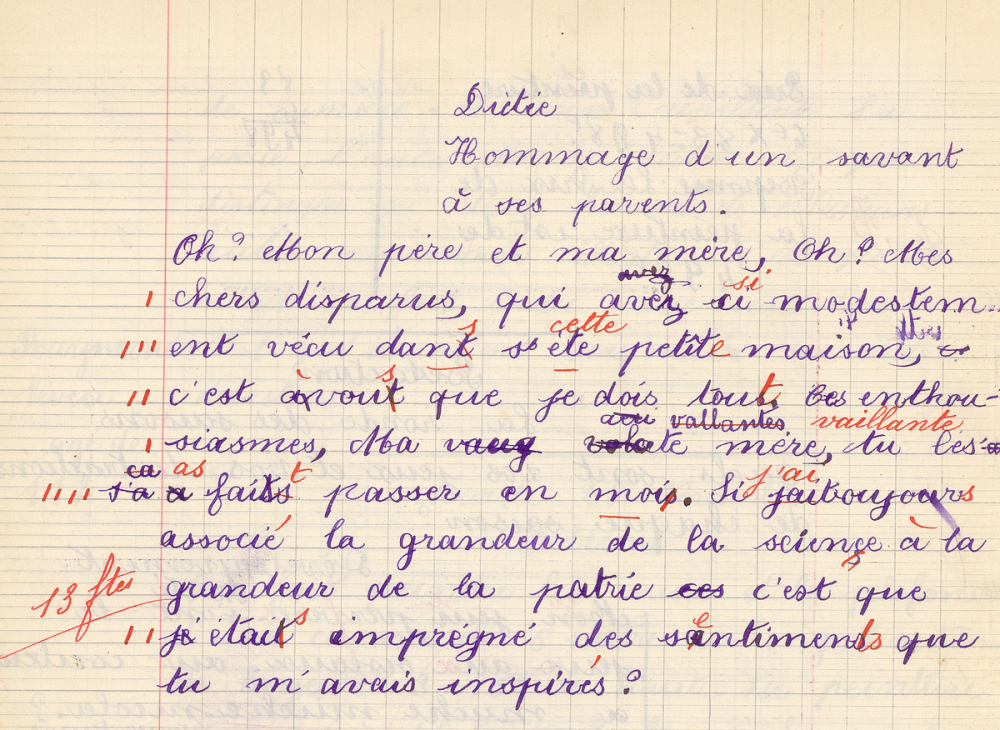 Dictée
Hommage d'un savant
à ses parents.
Oh? Mon père et ma mère, Oh? Mes
avez si
chers disparus, qui avez ci modestem-
s cette
ent vécu dant se éte petite maison,
s
c'est àvout que je dois tout. Ces enthou-
vallantes vaillante
siasmes, Ma mère, tu les
ca as t j'ai
s'a a faits passer en moi. Si jaitoujours
associé la grandeur de la science à la
13 ftes
grandeur de la patrie ces c'est que
s e
je étais imprégné des santiments que
tu m'avais inspirés?